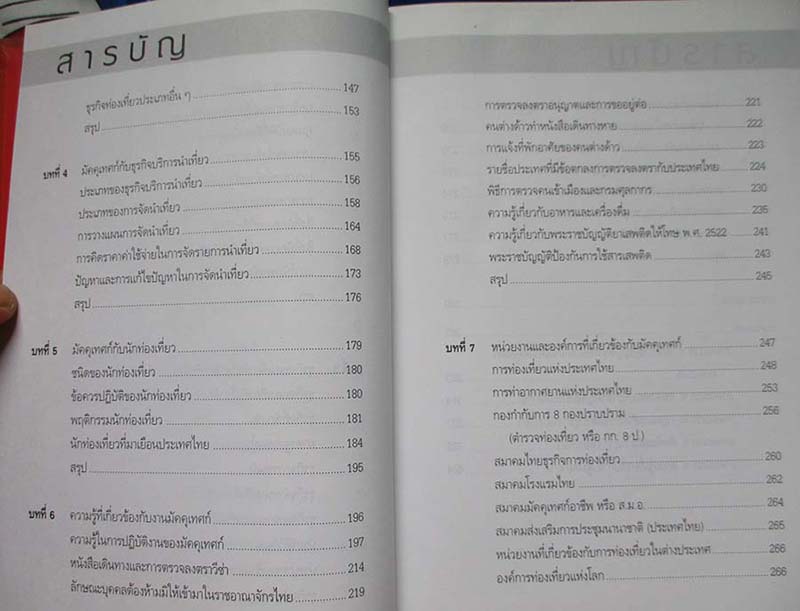 สารบัญ
ธุรกิจท่องเที่ยวประเภทอื่น ๆ 147
สรุป 153
บทที่ 4 มัคคุเทศก์กับธุรกิจบริการนำเที่ยว 155
ประเภทของธุรกิจบริการนำเที่ยว 156
ประเภทของการจัดนำเที่ยว 158
การวางแผนการจัดนำเที่ยว 164
การคิดราคาค่าใช้จ่ายในการจัดรายการนำเที่ยว 168
ปัญหาและการแก้ไขปัญหาในการจัดนำเที่ยว 173
สรุป 176
บทที่ 5 มัคคุเทศก์กับนักท่องเที่ยว 179
ชนิดของนักท่องเที่ยว 180
ข้อควรปฏิบัติของนักท่องเที่ยว 180
พฤติกรรมนักท่องเที่ยว 181
นักท่องเที่ยวที่มาเยือนประเทศไทย 184
สรุป 195
บทที่ 6 ความรู้ที่เกี่ยวข้องกับงานมัคคุเทศก์ 196
ความรู้ในการปฏิบัติงานของมัคคุเทศก์ 197
หนังสือเดินทางและการตรวจลงตราวีซ่า 214
ลักษณะบุคคลต้องห้ามมิให้เข้ามาในราชอาณาจักรไทย 219
การตรวจลงตราอนุญาตและการขออยู่ต่อ 221
คนต่างด้าวทำหนังสือเดินทางหาย 222
การแจ้งที่พักอาศัยของคนต่างด้าว 223
รายชื่อประเทศที่มีข้อตกลงการตรวจลงตรากับประเทศไทย 224
พิธีการตรวจคนเข้าเมืองและกรมศุลกากร 230
ความรู้เกี่ยวกับอาหารและเครื่องดื่ม 235
ความรู้เกี่ยวกับพระราชบัญญัติยาเสพติดให้โทษ พ.ศ. 2522 241
พระราชบัญญัติป้องกันการใช้สารเสพติด 243
สรุป 245
บทที่ 7 หน่วยงานและองค์การที่เกี่ยวข้องกับมัคคุเทศก์ 247
การท่องเที่ยวแห่งประเทศไทย 248
การท่าอากาศยานแห่งประเทศไทย 253
กองกำกับการ 8 กองปราบปราม 256
(ตำรวจท่องเที่ยว หรือ กก. 8 ป.)
สมาคมไทยธุรกิจการท่องเที่ยว 260
สมาคมโรงแรมไทย 262
สมาคมมัคคุเทศก์อาชีพ หรือ ส.ม.อ. 264
สมาคมส่งเสริมการประชุมนานาชาติ (ประเทศไทย) 265
หน่วยงานที่เกี่ยวข้องกับการท่องเที่ยวในต่างประเทศ 266
องค์การท่องเที่ยวแห่งโลก 266